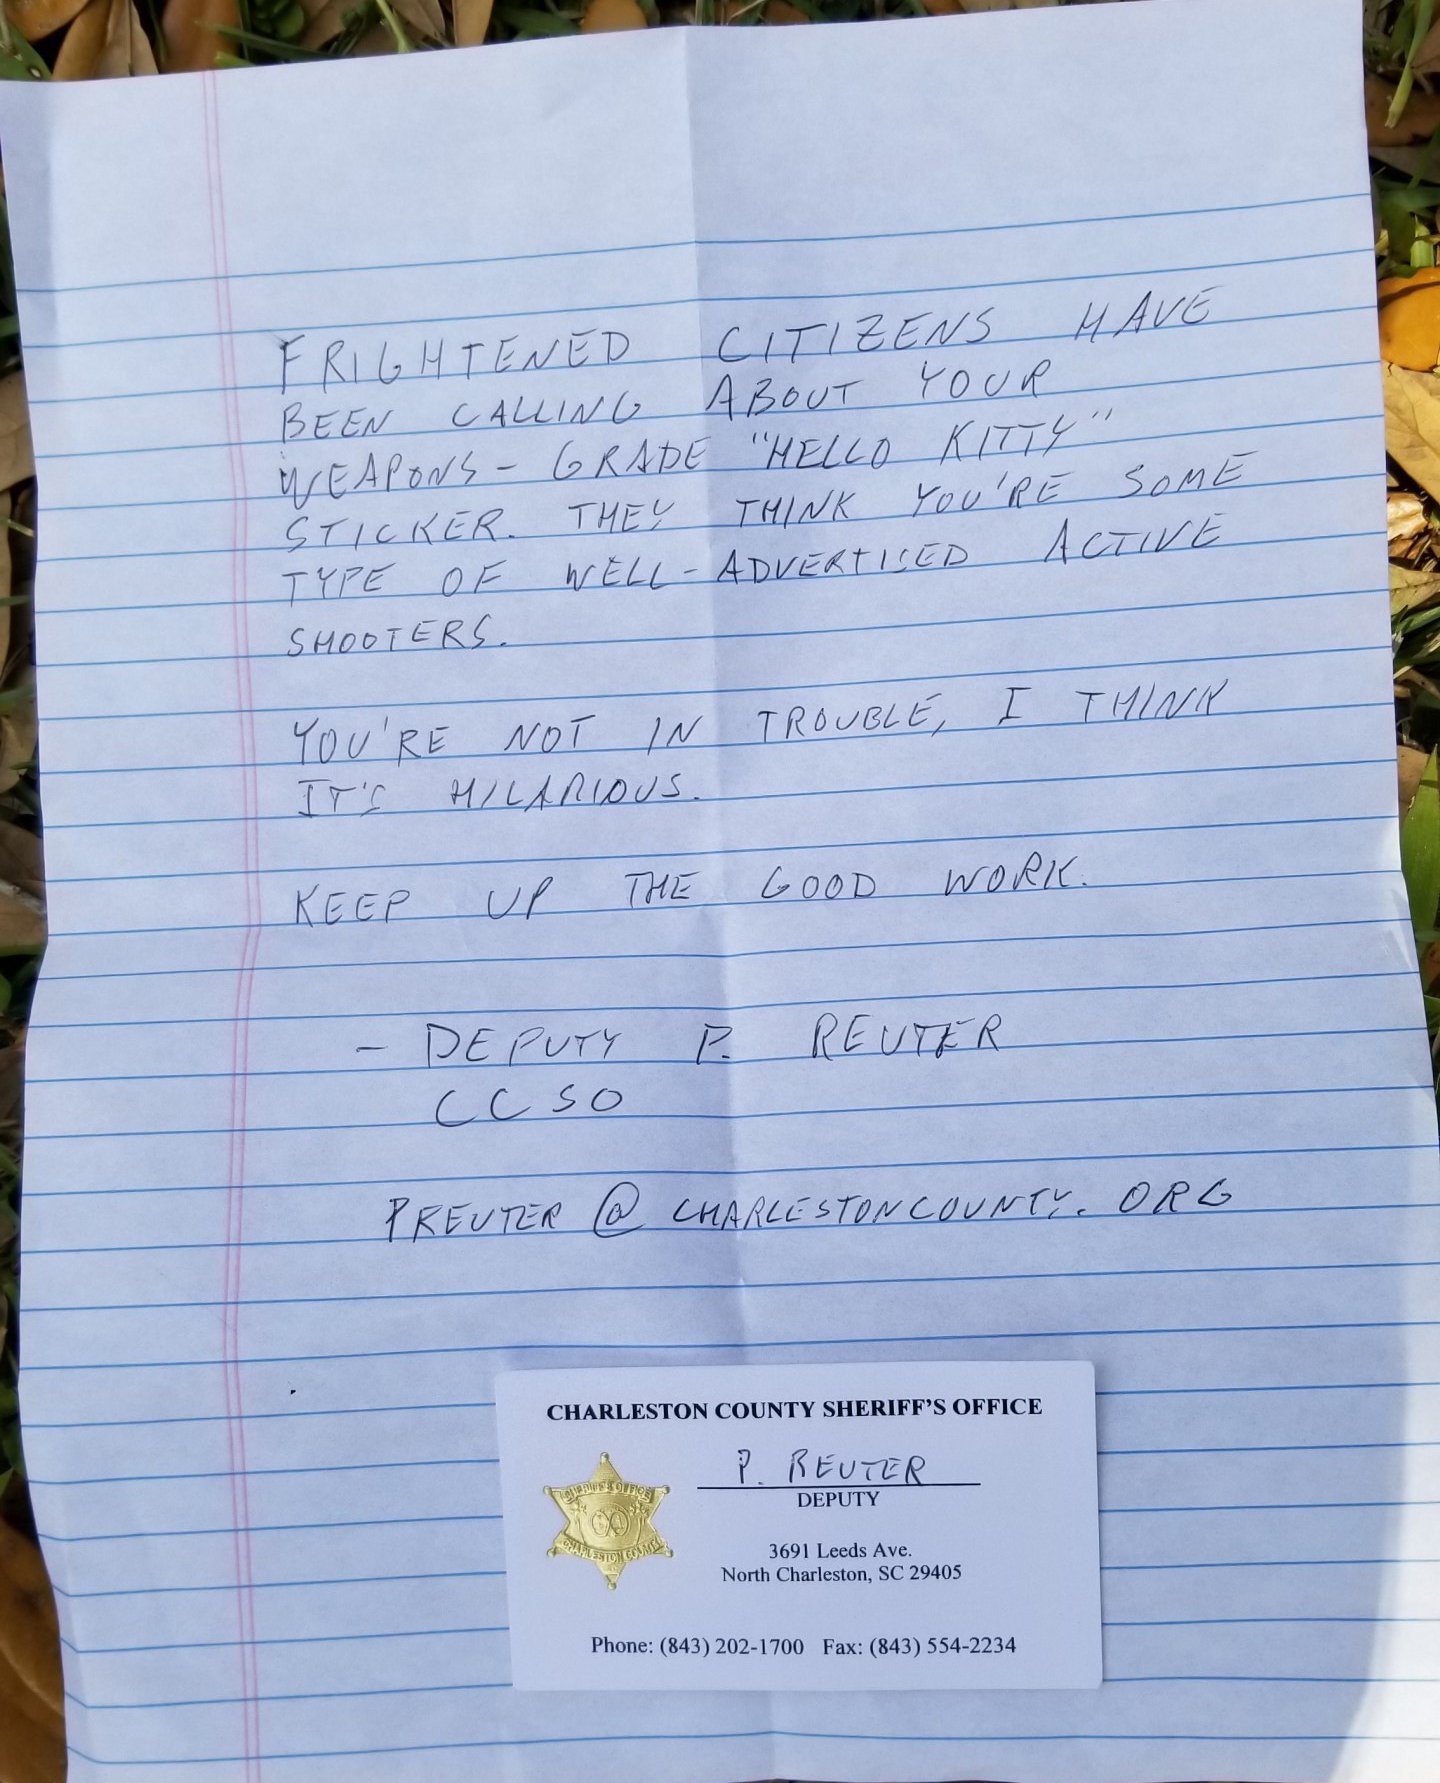 FRIGHTENED CITIZENS HAVE
BEEN CALLING ABOUT YOUR
WEAPONS-GRADE "HELLO KITTY"
STICKER. THEY THINK YOU'RE SOME
TYPE OF WELL-ADVERTISED ACTIVE
SHOOTERS.
YOU'RE NOT IN TROUBLE, I THINK
IT'S HILARIOUS.
KEEP UP THE GOOD WORK.
- DEPUTY P. REUTER
CCSO
PREUTER@CHARLESTONCOUNTY.ORG
CHARLESTON COUNTY SHERIFF'S OFFICE
P. REUTER
DEPUTY
SHERIFF'S OFFICE
CHARLESTON COUNTY
3691 Leeds Ave.
North Charleston, SC 29405
Phone: (843) 202-1700 Fax: (843) 554-2234